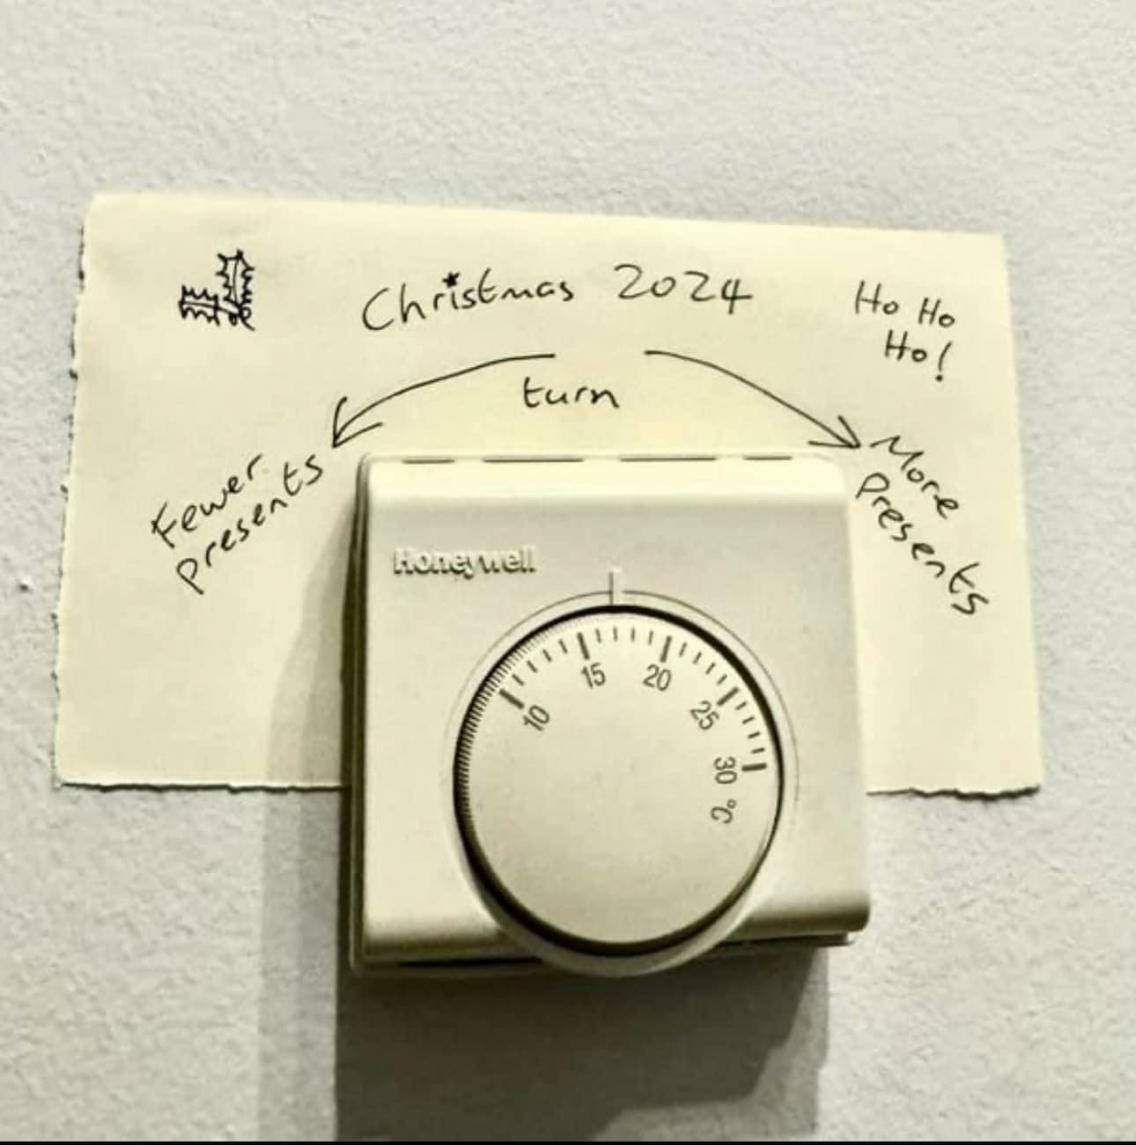 Christmas 2024
Ho Ho
Ho!
turn
Fewer
presents
More
Presents
Honeywell
10 15 20 25 30 °C